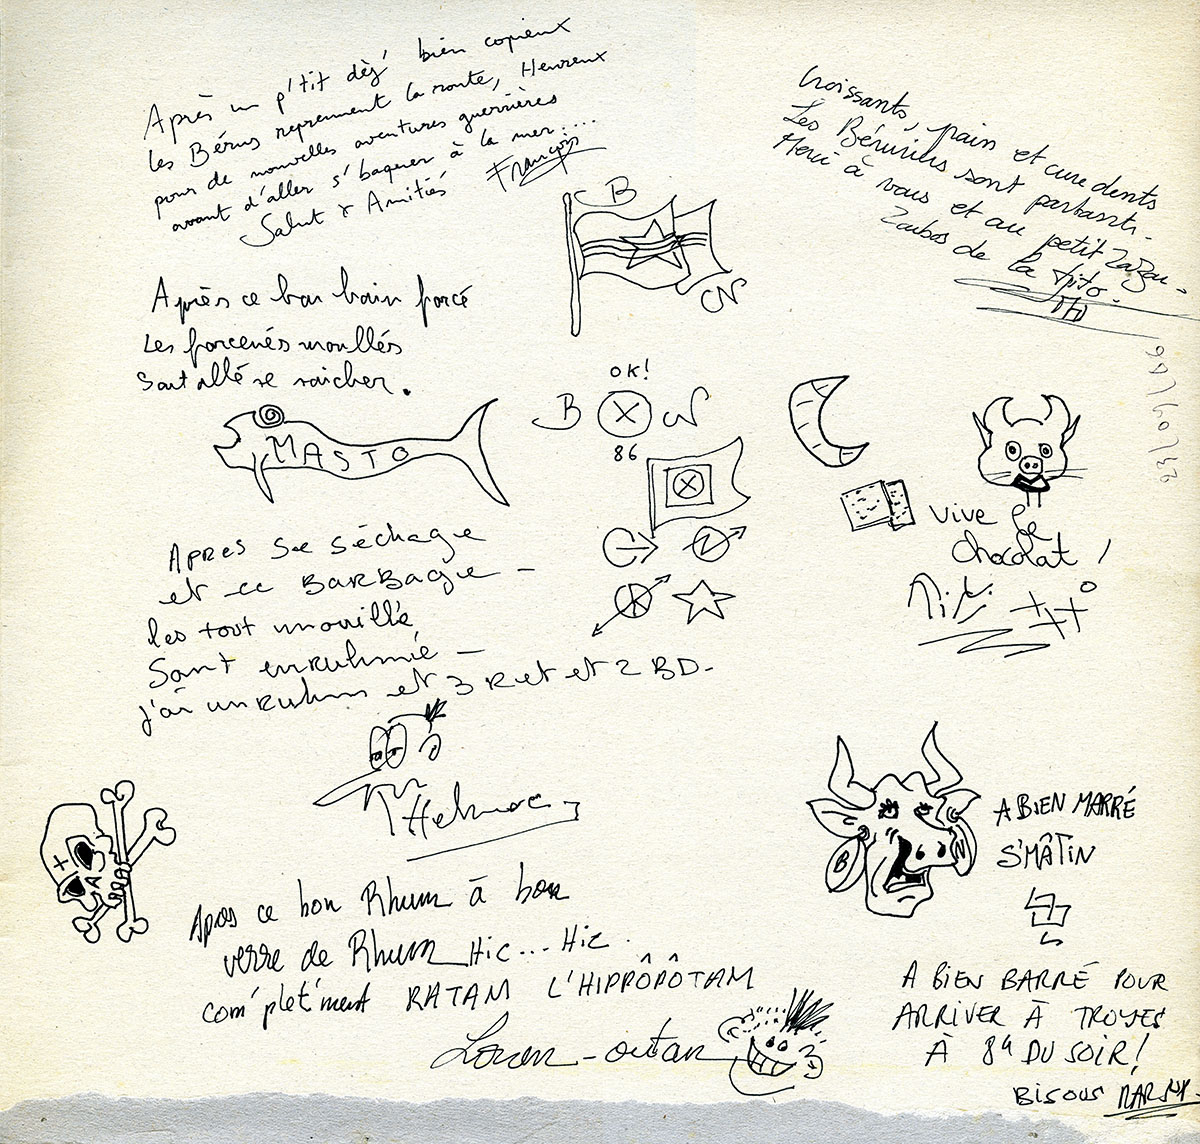 Après un p'tit déj' bien copieux
les Bérus reprennent la route, Heureux
pour de nouvelles aventures guerrières
avant d'aller s'baquer à la mer....
Salut & Amitiés François
B
CN
Croissants, pain et cure dents
Les Béruriers sont partants.
Merci à vous et au petit Zaza.
Zoubos de la
23/04/86
Après ce bon bain forcé
Les forcenés mouillés
Sont allé se saicher.
MASTO
OK!
B X CN
86
X
N
K
vive le
chocolat !
APRES se séchage
et ce BARBAQUE -
les tout mouillé
Sont enruhmé -
j'ai un Ruhm et 3 R et et 2 BD.
Helmoc
B N
A BIEN MARRÉ
S'MÂTIN
Après ce bon Rhum à bon
verre de Rhum Hic... Hic.
com'plet'ment RATAM L'HIPPÔPÔTAM
Loran-outan
A BIEN BARRÉ POUR
ARRIVER À TROYES
À 8H DU SOIR!
BISOUS MARSU